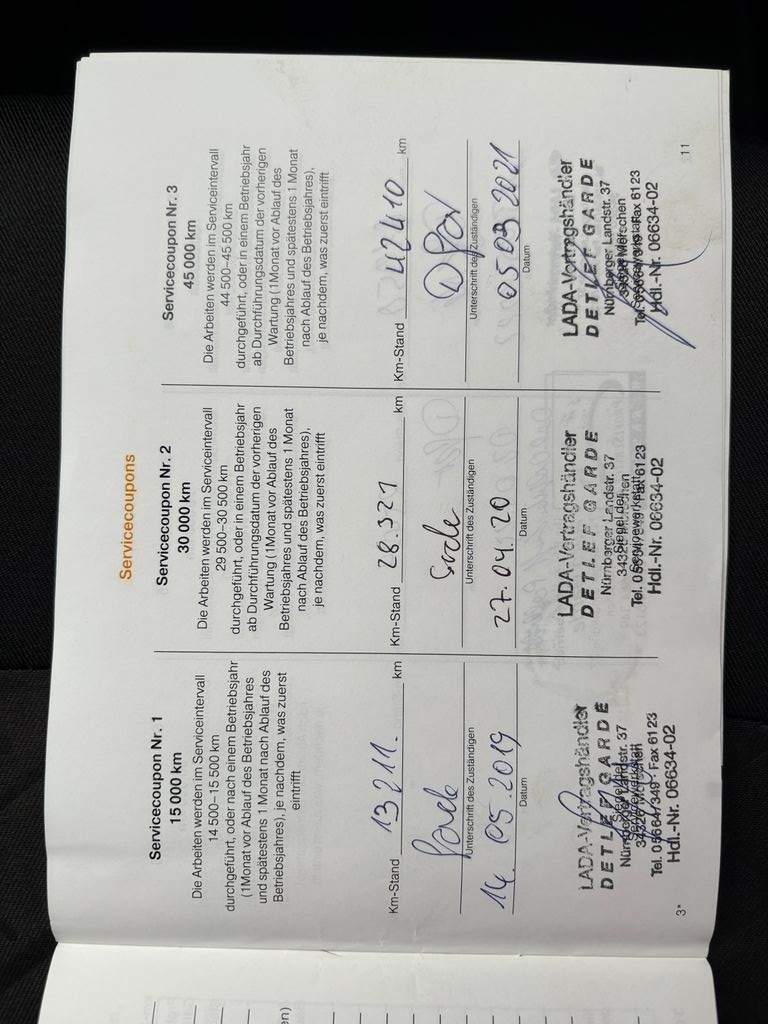 Servicecoupons
Servicecoupon Nr. 1
15 000 km
Die Arbeiten werden im Serviceintervall
14 500–15 500 km
durchgeführt, oder nach einem Betriebsjahr
(1Monat vor Ablauf des Betriebsjahres
und spätestens 1 Monat nach Ablauf des
Betriebsjahres), je nachdem, was zuerst
eintrifft
Km-Stand 13211.- km
Unterschrift des Zuständigen
14.05.2019
Datum
LADA-Vertragshändler
DETLEF GARDE
Nürnberger Landstr. 37
Tel. 05664/7349 · Fax 6123
Hdl.-Nr. 06634-02
3*
Servicecoupon Nr. 2
30 000 km
Die Arbeiten werden im Serviceintervall
29 500–30 500 km
durchgeführt, oder in einem Betriebsjahr
ab Durchführungsdatum der vorherigen
Wartung (1Monat vor Ablauf des
Betriebsjahres und spätestens 1 Monat
nach Ablauf des Betriebsjahres),
je nachdem, was zuerst eintrifft
Km-Stand 28.321 km
Unterschrift des Zuständigen
27.04.20
Datum
LADA-Vertragshändler
DETLEF GARDE
Nürnberger Landstr. 37
Hdl.-Nr. 06634-02
Servicecoupon Nr. 3
45 000 km
Die Arbeiten werden im Serviceintervall
44 500–45 500 km
durchgeführt, oder in einem Betriebsjahr
ab Durchführungsdatum der vorherigen
Wartung (1Monat vor Ablauf des
Betriebsjahres und spätestens 1 Monat
nach Ablauf des Betriebsjahres),
je nachdem, was zuerst eintrifft
Km-Stand 42410 km
Unterschrift des Zuständigen
05 03 2021
Datum
LADA-Vertragshändler
DETLEF GARDE
Nürnberger Landstr. 37
Hdl.-Nr. 06634-02
11